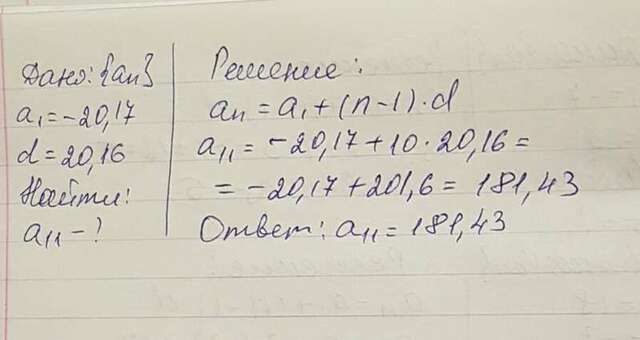 Дано: {an}
a₁ = -20,17
d = 20,16
Найти:
a₁₁ - ?
Решение:
an = a₁ + (n-1) · d
a₁₁ = -20,17 + 10 · 20,16 =
= -20,17 + 201,6 = 181,43
Ответ: a₁₁ = 181,43